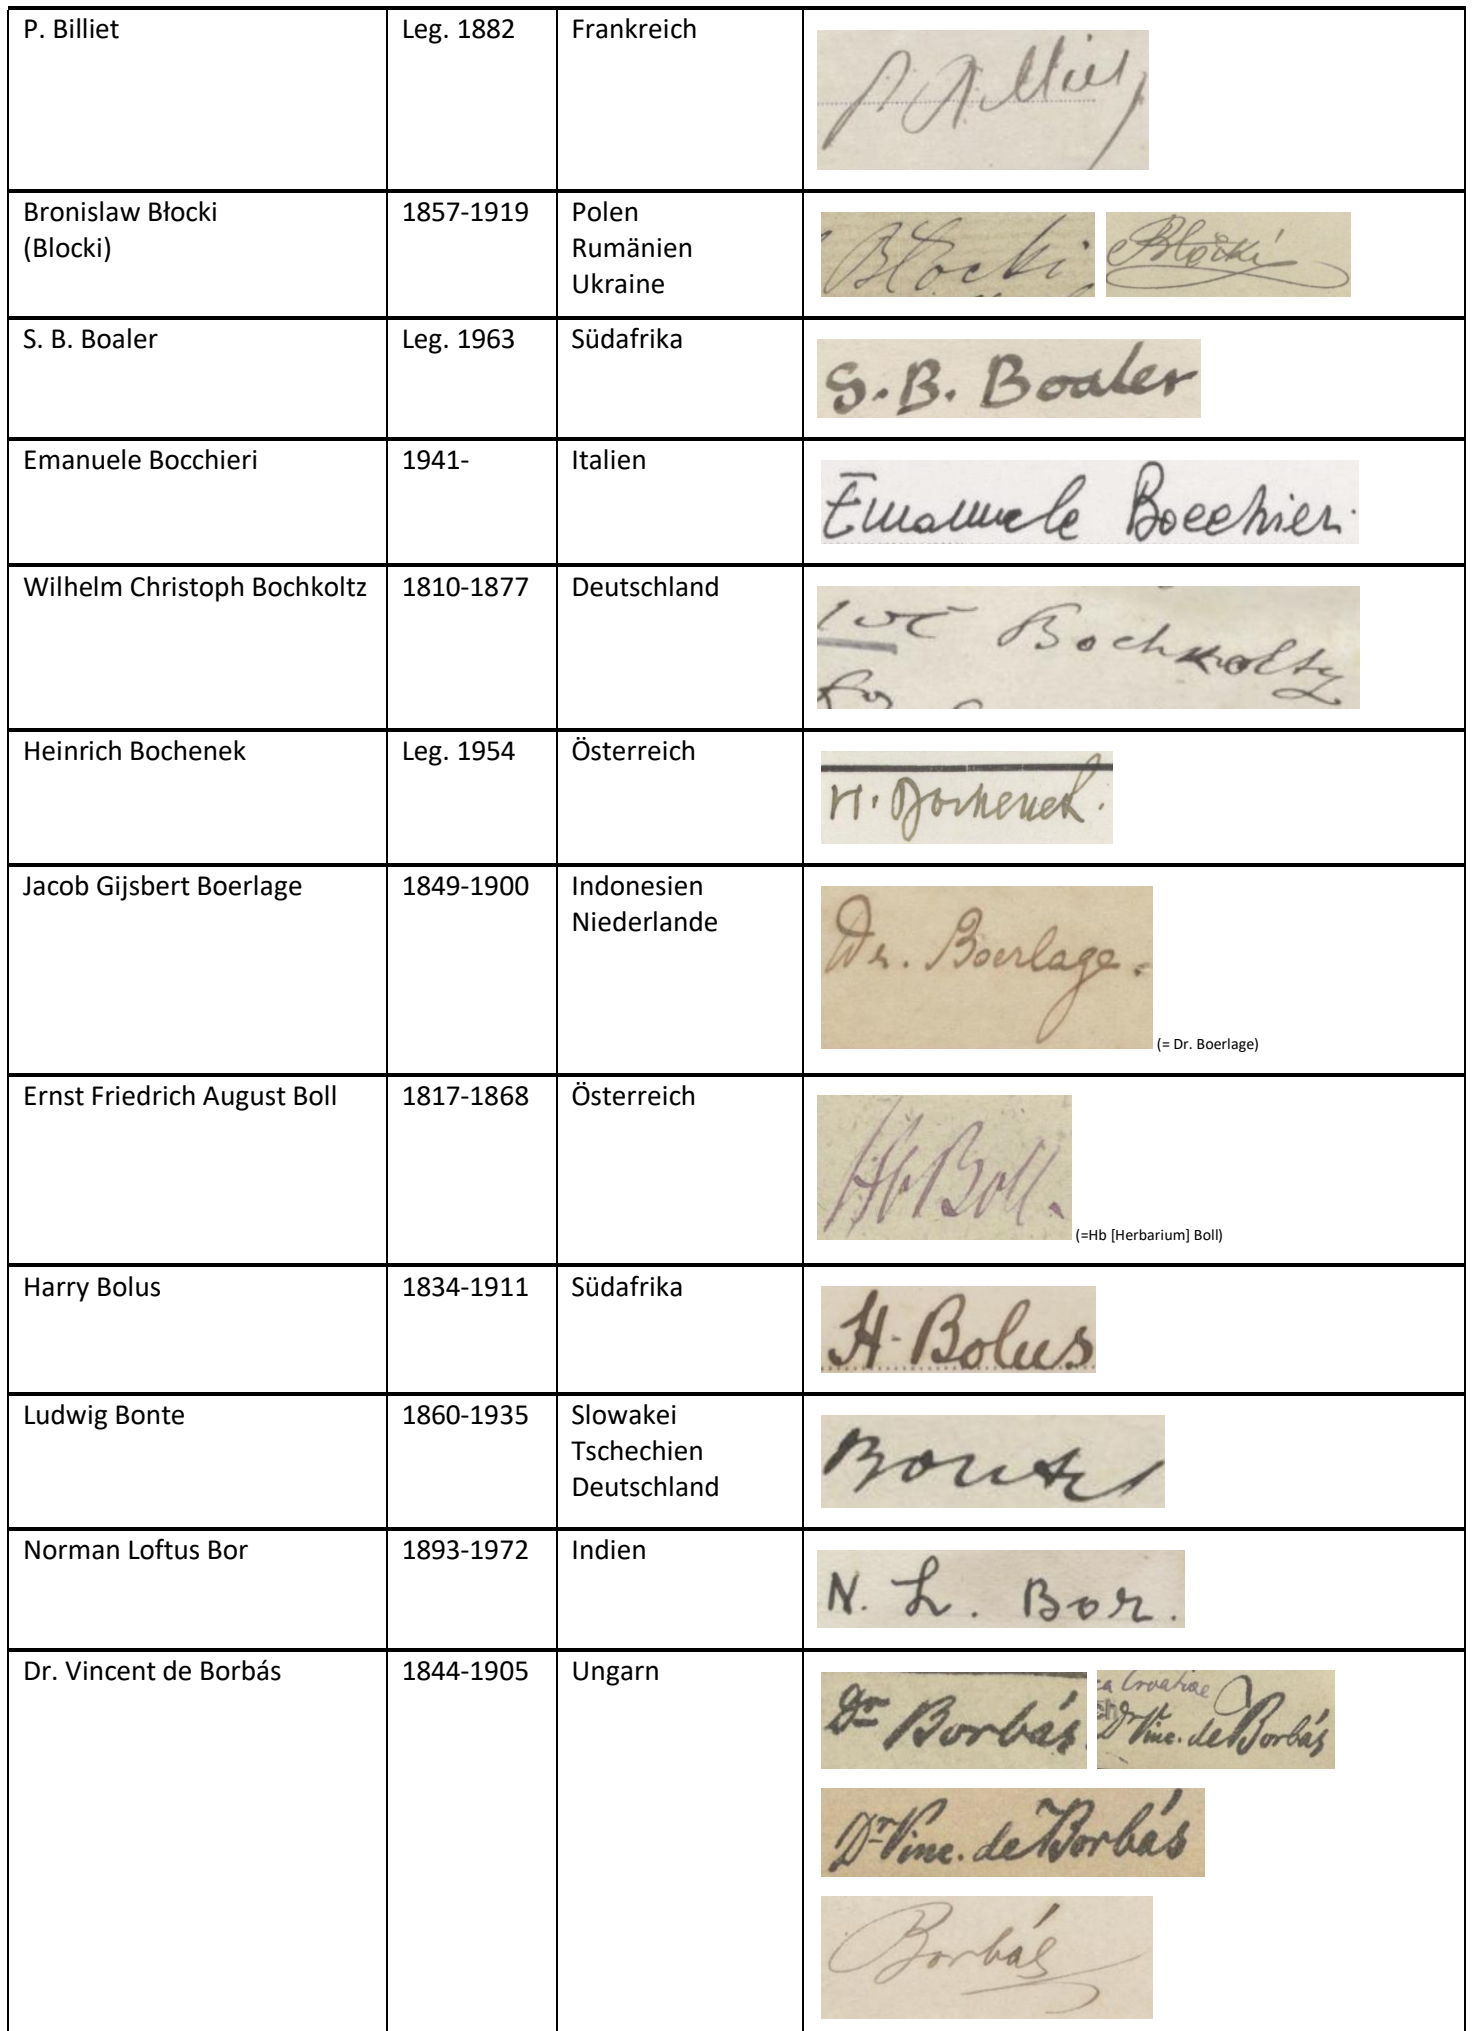 P. Billiet
Leg. 1882
Frankreich
Bronislaw Błocki
(Blocki)
1857-1919
Polen
Rumänien
Ukraine
Błocki
Błocki
S. B. Boaler
Leg. 1963
Südafrika
S. B. Boaler
Emanuele Bocchieri
1941-
Italien
Emanuele Bocchieri
Wilhelm Christoph Bochkoltz
1810-1877
Deutschland
Bochkoltz
Heinrich Bochenek
Leg. 1954
Österreich
H. Bochenek.
Jacob Gijsbert Boerlage
1849-1900
Indonesien
Niederlande
Dr. Boerlage.
(= Dr. Boerlage)
Ernst Friedrich August Boll
1817-1868
Österreich
Hb Boll.
(=Hb [Herbarium] Boll)
Harry Bolus
1834-1911
Südafrika
H. Bolus
Ludwig Bonte
1860-1935
Slowakei
Tschechien
Deutschland
Bonte
Norman Loftus Bor
1893-1972
Indien
N. L. Bor.
Dr. Vincent de Borbás
1844-1905
Ungarn
Dr Borbás
a Croatiae
Dr Vinc. de Borbás
Dr Vinc. de Borbás
Borbás